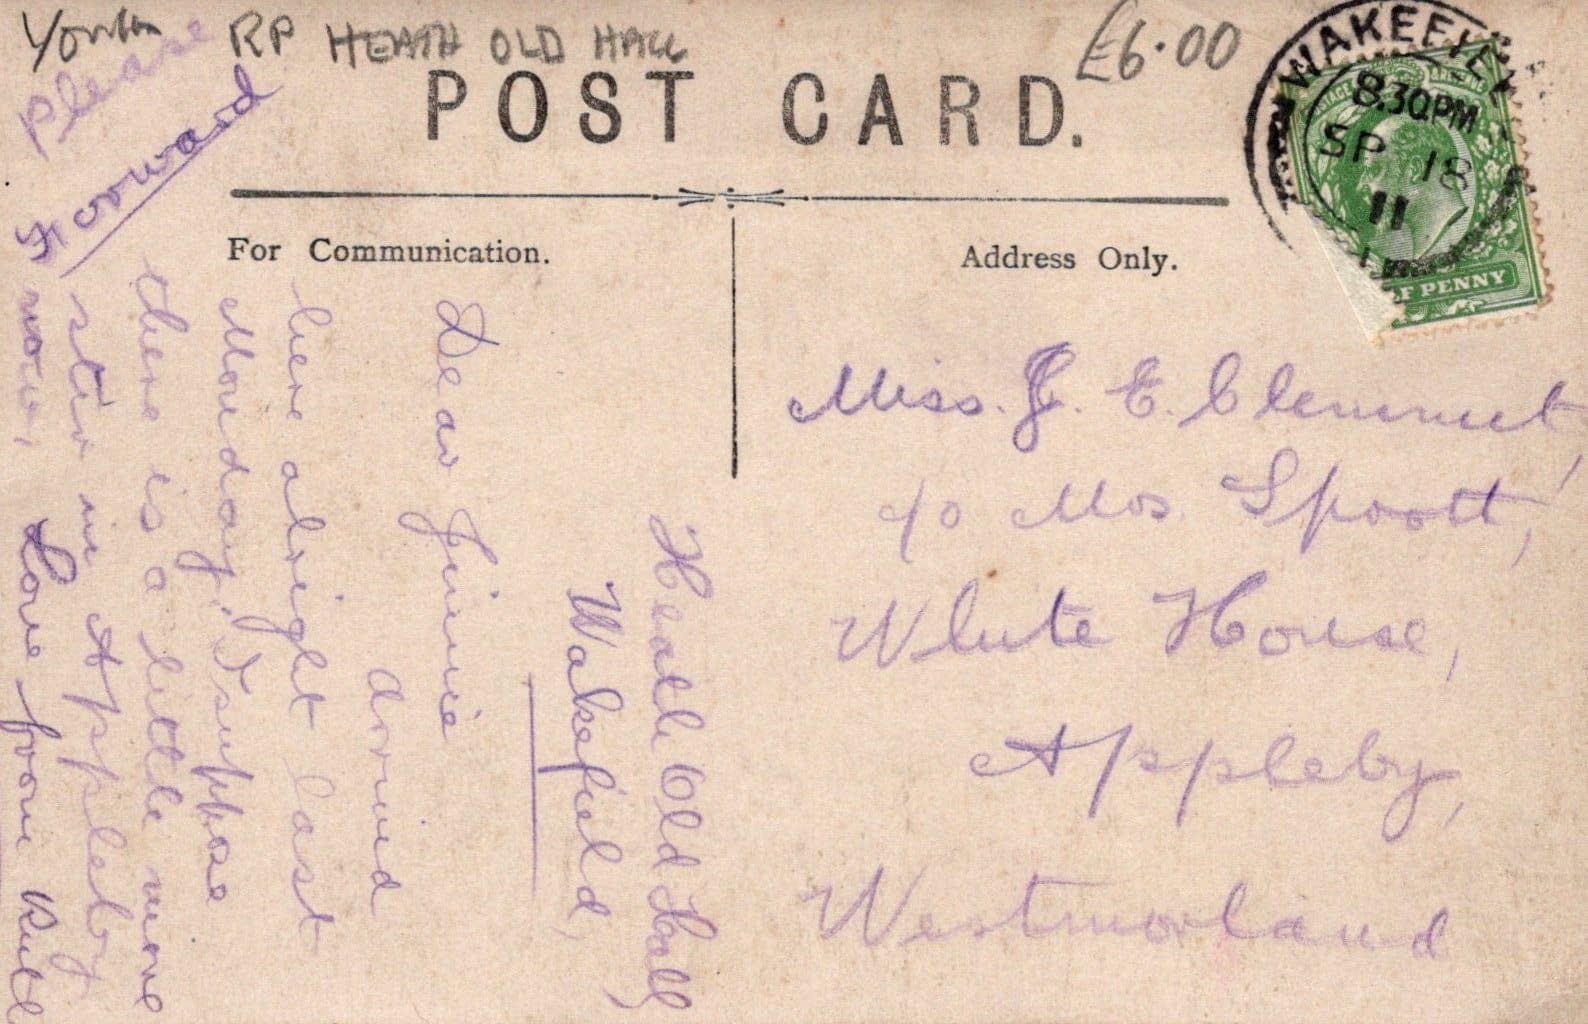 RP HEATH OLD HALL
£6.00
Please
Forward
POST CARD.
WAKEFIEL
8.30PM
SP 18
11
F PENNY
For Communication.
Address Only.
Heath Old Hall
Wakefield,
Dear Jinnie
arrived
here alright last
Monday. I suppose
there is a little more
stir in Appleby
now.
Love from
Miss. J. E. Clemmet,
c/o Mrs. Sproatt,
White House,
Appleby,
Westmorland